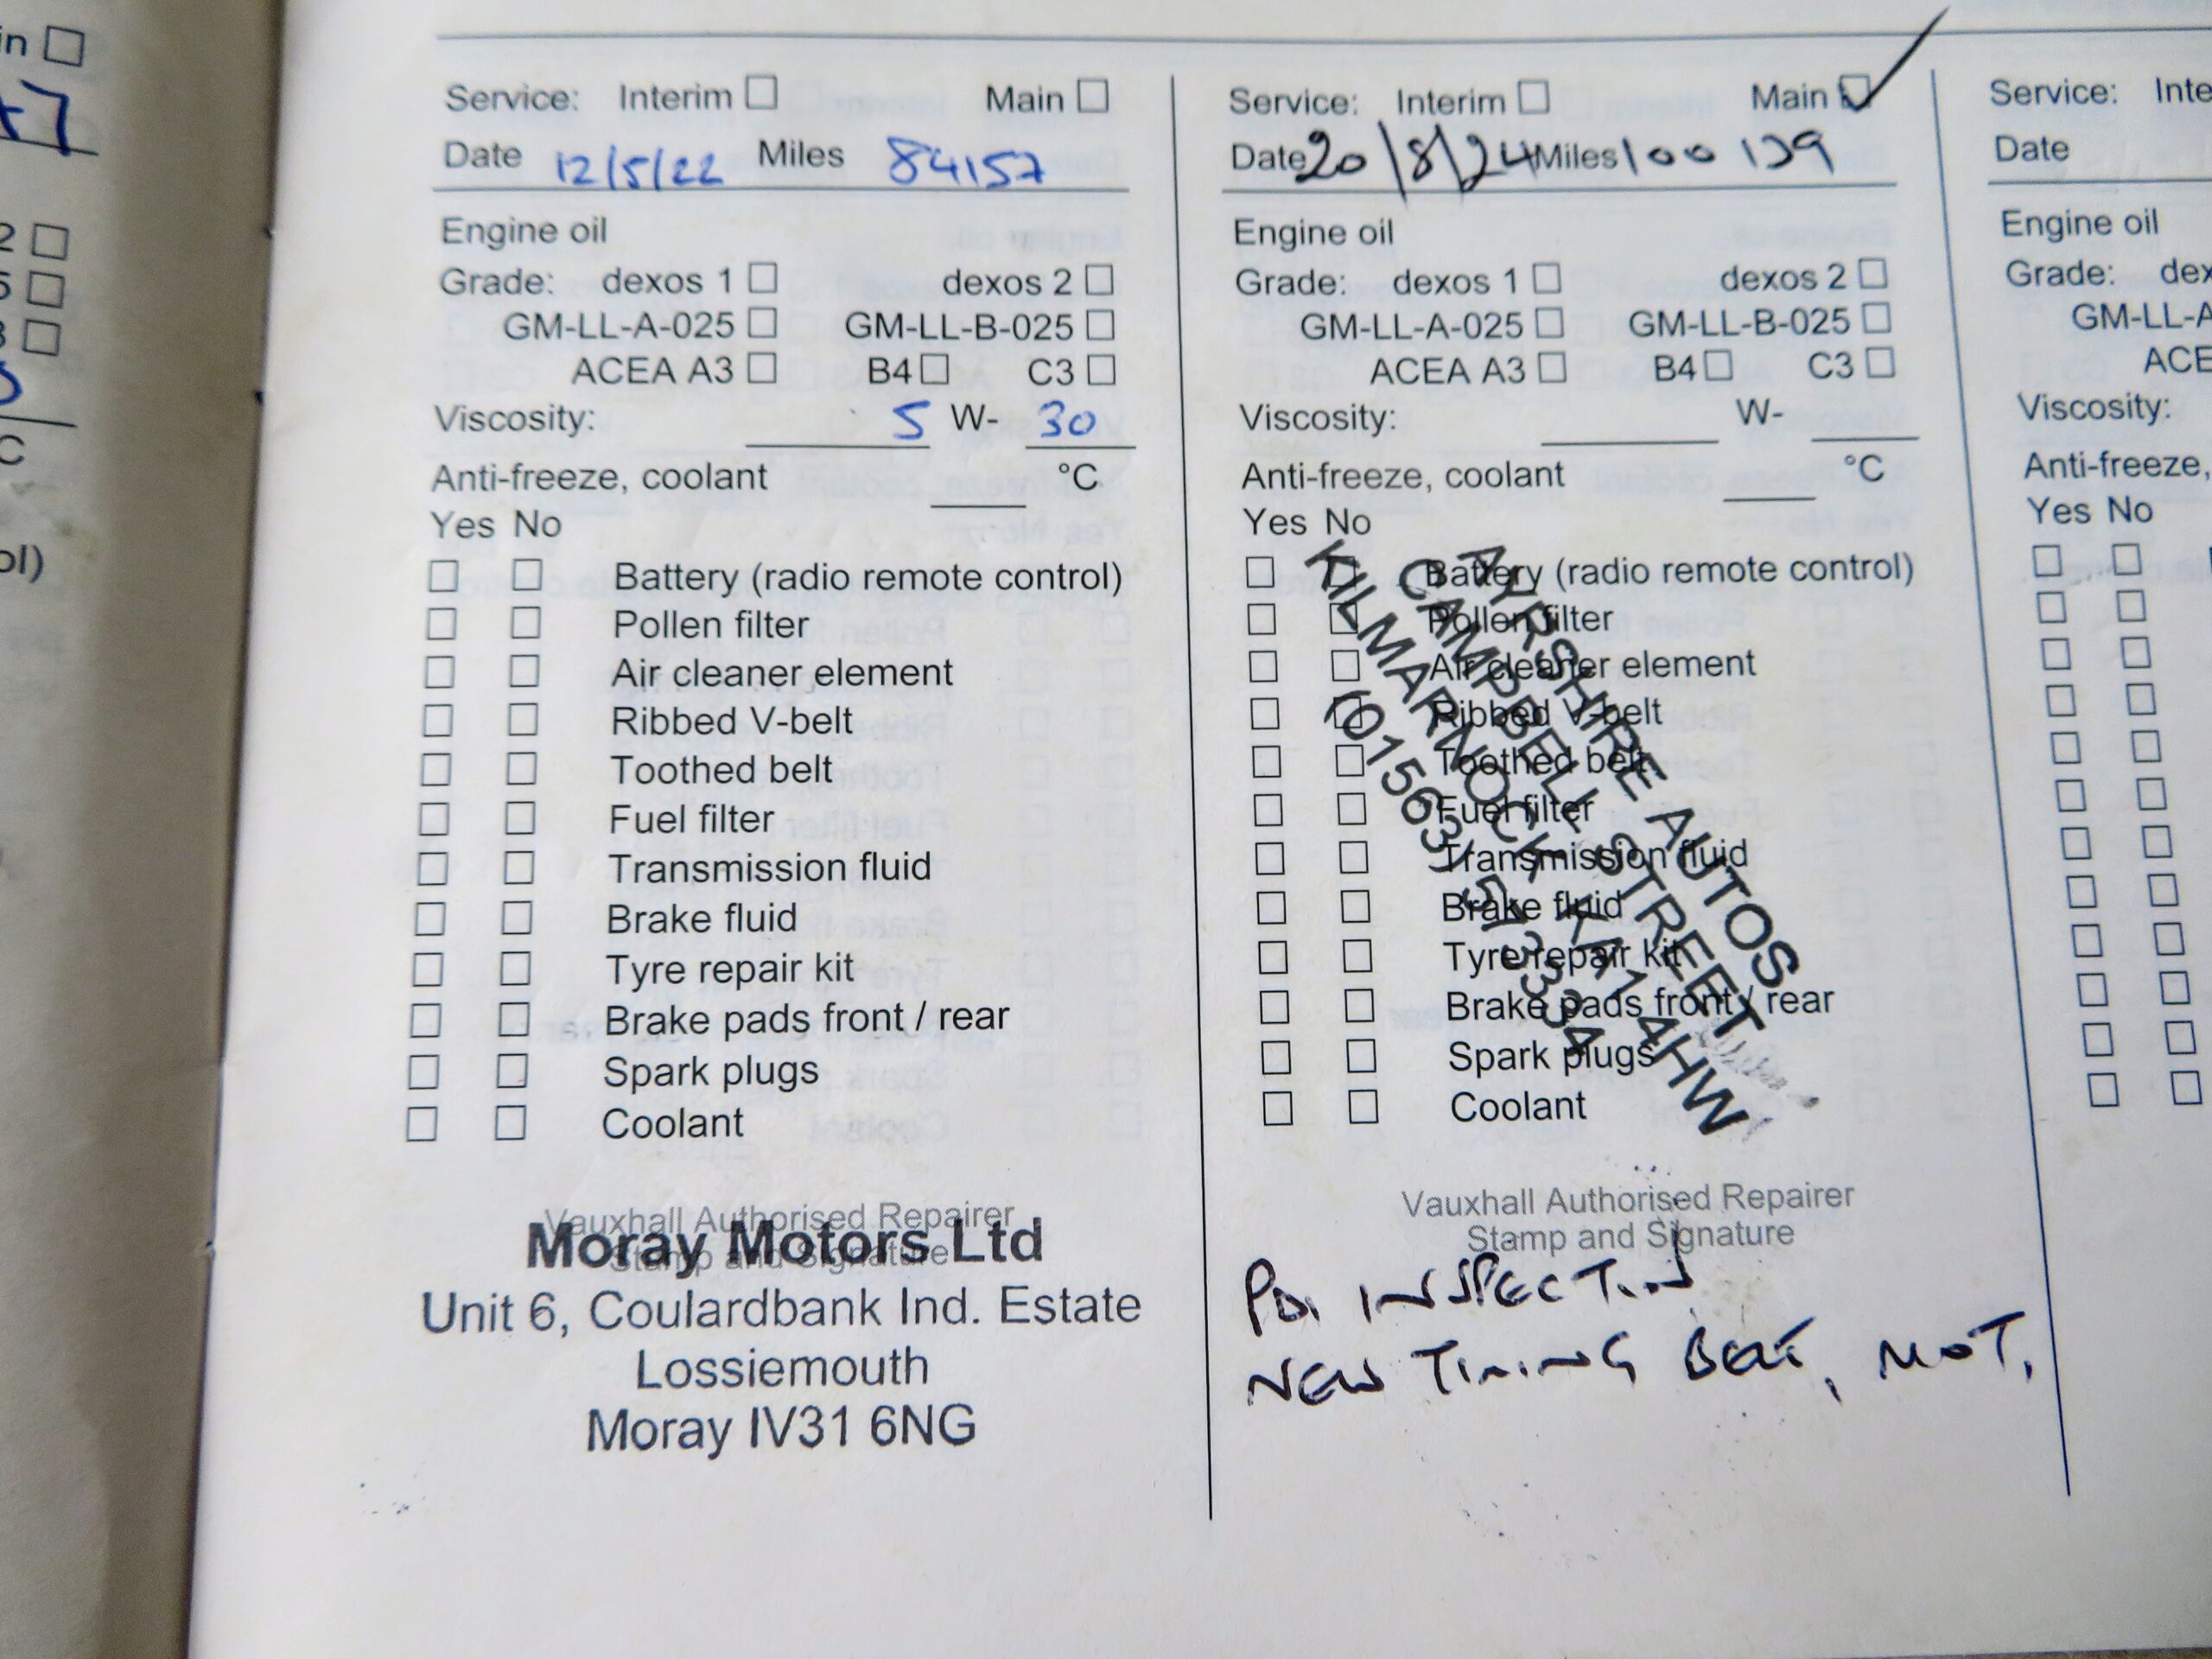 in
+7
2
5
3
C
ol)
Service: Interim Main
Date 12/5/22 Miles 84157
Engine oil
Grade: dexos 1 dexos 2
GM-LL-A-025 GM-LL-B-025
ACEA A3 B4 C3
Viscosity: 5 W- 30
Anti-freeze, coolant °C
Yes No
Battery (radio remote control)
Pollen filter
Air cleaner element
Ribbed V-belt
Toothed belt
Fuel filter
Transmission fluid
Brake fluid
Tyre repair kit
Brake pads front / rear
Spark plugs
Coolant
Vauxhall Authorised Repairer
Stamp and Signature
Moray Motors Ltd
Unit 6, Coulardbank Ind. Estate
Lossiemouth
Moray IV31 6NG
Service: Interim Main ✓
Date 20/8/24 Miles 100 139
Engine oil
Grade: dexos 1 dexos 2
GM-LL-A-025 GM-LL-B-025
ACEA A3 B4 C3
Viscosity: W-
Anti-freeze, coolant °C
Yes No
Battery (radio remote control)
Pollen filter
Air cleaner element
Ribbed V-belt
Toothed belt
Fuel filter
Transmission fluid
Brake fluid
Tyre repair kit
Brake pads front / rear
Spark plugs
Coolant
AYRSHIRE AUTOS
CAMPBELL STREET
KILMARNOCK KA1 4HW
(01563) 513334
Vauxhall Authorised Repairer
Stamp and Signature
PDI INSPECTION
NEW TIMING BELT, MOT,
Service: Inte
Date
Engine oil
Grade: dex
GM-LL-A
ACE
Viscosity:
Anti-freeze,
Yes No